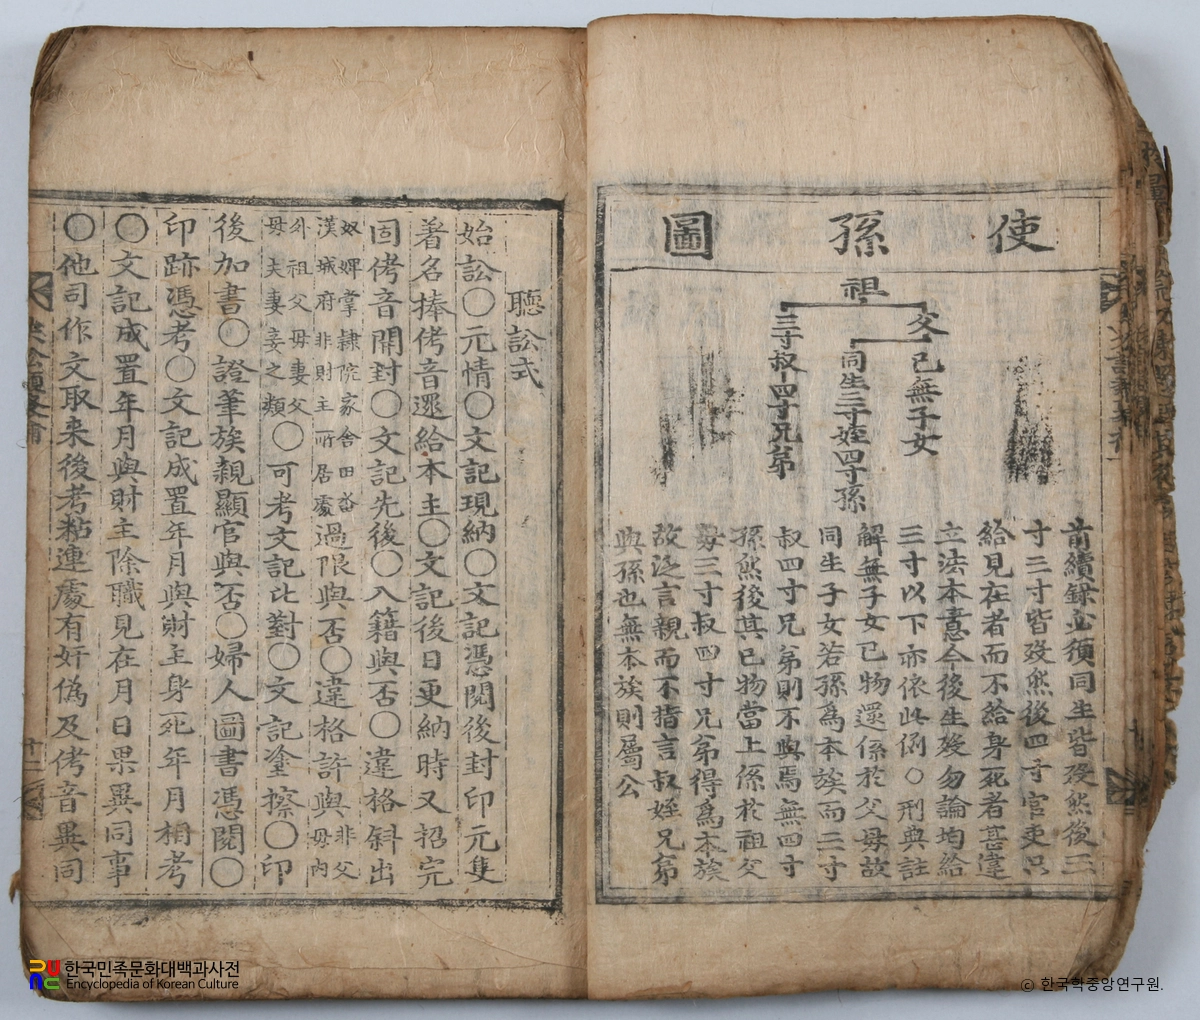 使孫圖
祖
父
己無子女
同生三寸姪四寸孫
三寸叔四寸兄弟
前續錄必須同生皆歿然後三
寸三寸皆歿然後四寸官吏只
給見在者而不給身死者甚違
立法本意今後生歿勿論均給
三寸以下亦依此例○刑典註
解無子女己物還係於父母故
同生子女若孫爲本族而三寸
叔四寸兄弟則不與焉無四寸
孫然後其己物當上係於祖父
母三寸叔四寸兄弟得爲本族
故泛言親而不指言叔姪兄弟
與孫也無本族則屬公
聽訟式
始訟○元情○文記現納○文記憑閱後封印元隻
著名捧侤音還給本主○文記後日更納時又招完
固侤音開封○文記先後○入籍與否○違格斜出
奴婢掌隸院家舍田畓
漢城府非財主所居處
過限與否○違格許與
非父
母內
外祖父母妻父
母夫妻妾之類
○可考文記比對○文記塗擦○印
後加書○證筆族親顯官與否○婦人圖書憑閱○
印跡憑考○文記成置年月與財主身死年月相考
○文記成置年月與財主除職見在月日果異同事
○他司作文取来後考粘連處有奸僞及侤音異同
十二
한국민족문화대백과사전
Encyclopedia of Korean Culture
© 한국학중앙연구원.